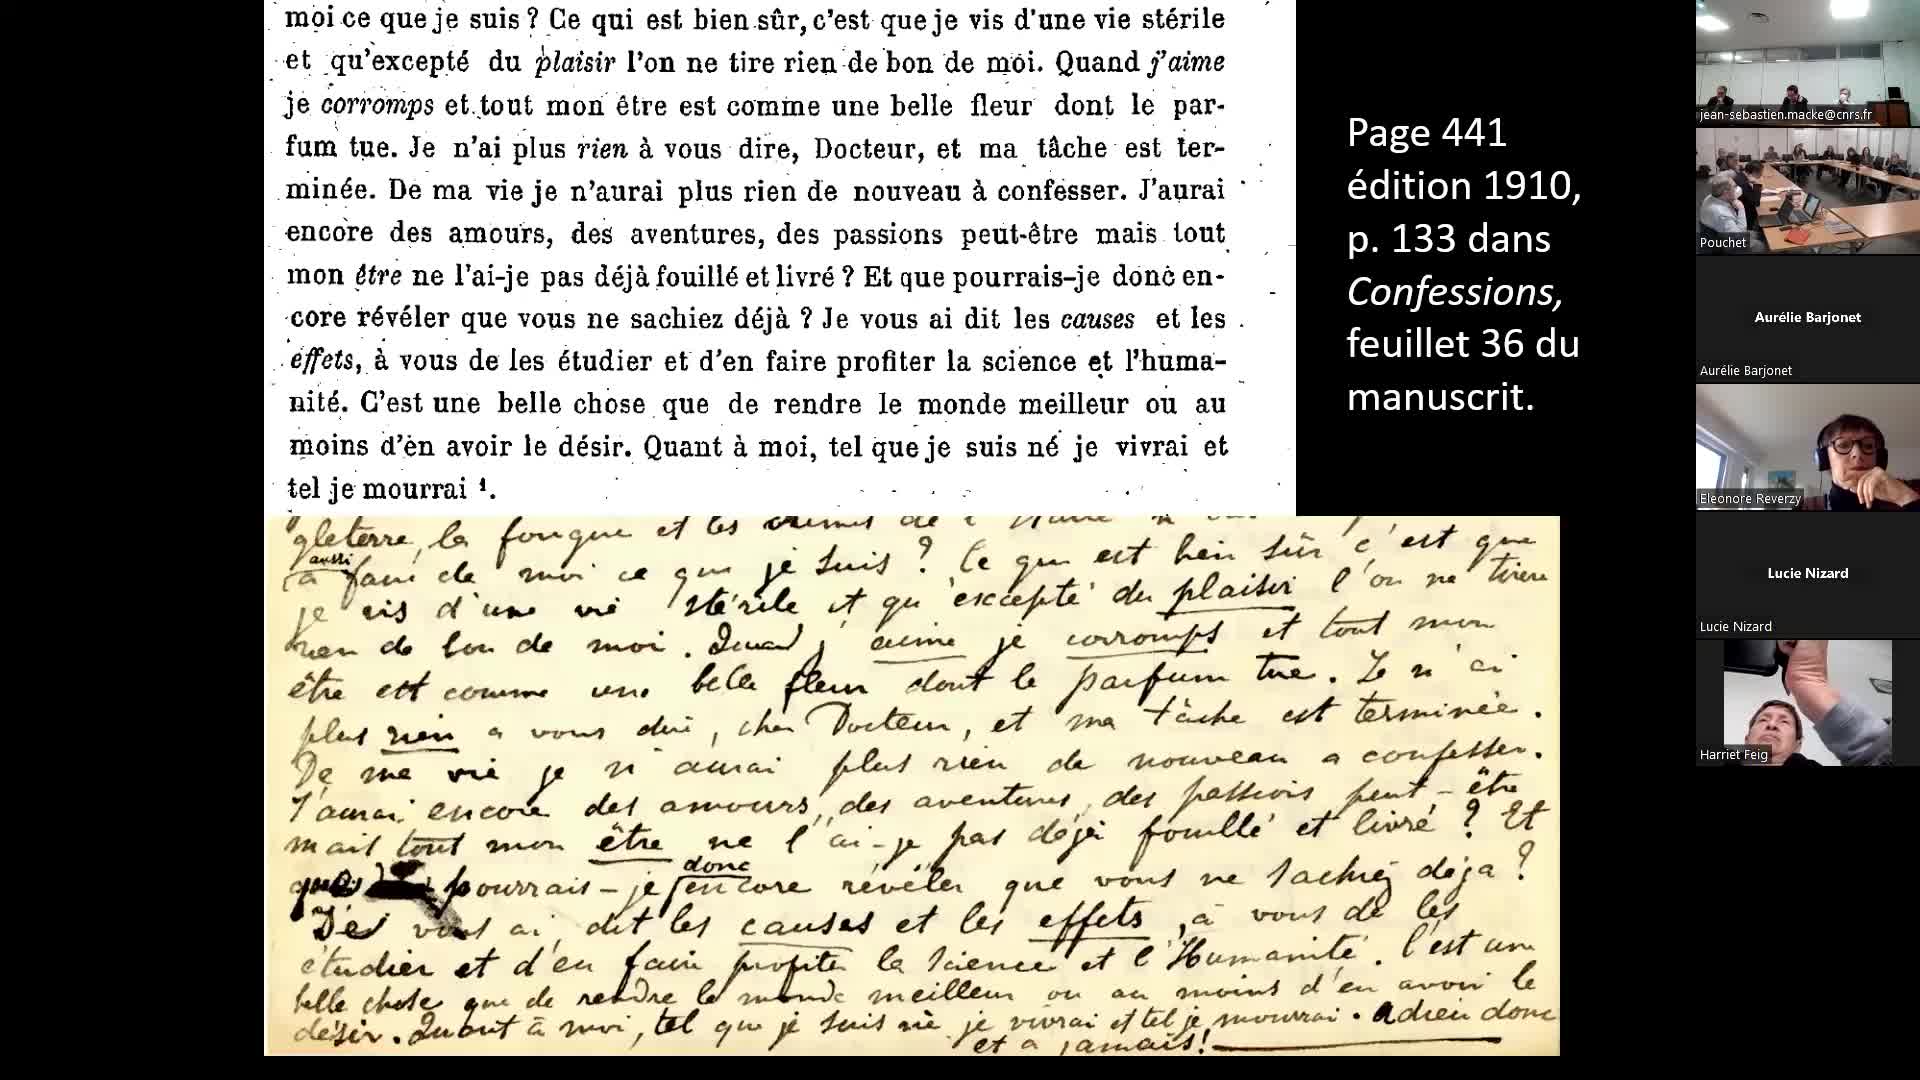 moi ce que je suis ? Ce qui est bien sûr, c'est que je vis d'une vie stérile
et qu'excepté du plaisir l'on ne tire rien de bon de moi. Quand j'aime
je corromps et tout mon être est comme une belle fleur dont le par-
fum tue. Je n'ai plus rien à vous dire, Docteur, et ma tâche est ter-
minée. De ma vie je n'aurai plus rien de nouveau à confesser. J'aurai
encore des amours, des aventures, des passions peut-être mais tout
mon être ne l'ai-je pas déjà fouillé et livré ? Et que pourrais-je donc en-
core révéler que vous ne sachiez déjà ? Je vous ai dit les causes et les
effets, à vous de les étudier et d'en faire profiter la science et l'huma-
nité. C'est une belle chose que de rendre le monde meilleur ou au
moins d'en avoir le désir. Quant à moi, tel que je suis né je vivrai et
tel je mourrai ¹.
gleterre, la fougue et les
aussi
a fait de moi ce que je suis ? Ce qui est bien sûr c'est que
je vis d'une vie stérile et qu'excepté du plaisir l'on ne tire
rien de bon de moi. Quand j'aime je corromps et tout mon
être est comme une belle fleur dont le parfum tue. Je n'ai
plus rien a vous dire, cher Docteur, et ma tâche est terminée.
De ma vie je n'aurai plus rien de nouveau a confesser.
J'aurai encore des amours, des aventures, des passions peut-être
mais tout mon être ne l'ai-je pas déjà fouillé et livré ? Et
donc
que pourrais-je encore révéler que vous ne sachiez déja ?
Je vous ai dit les causes et les effets, à vous de les
étudier et d'en faire profiter la science et l'Humanité. C'est une
belle chose que de rendre le monde meilleur ou au moins d'en avoir le
désir. Quant à moi, tel que je suis né je vivrai et tel je mourrai. Adieu donc
et a jamais!
Page 441
édition 1910,
p. 133 dans
Confessions,
feuillet 36 du
manuscrit.
jean-sebastien.macke@cnrs.fr
Pouchet
Aurélie Barjonet
Aurélie Barjonet
Eleonore Reverzy
Lucie Nizard
Lucie Nizard
Harriet Feig